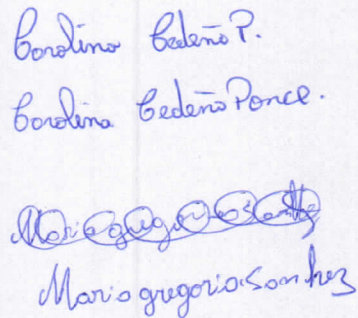 Carolina Cedeño P.
Carolina Cedeño Ponce.
Maria gregoria Sanchez
Maria gregoria Sanchez